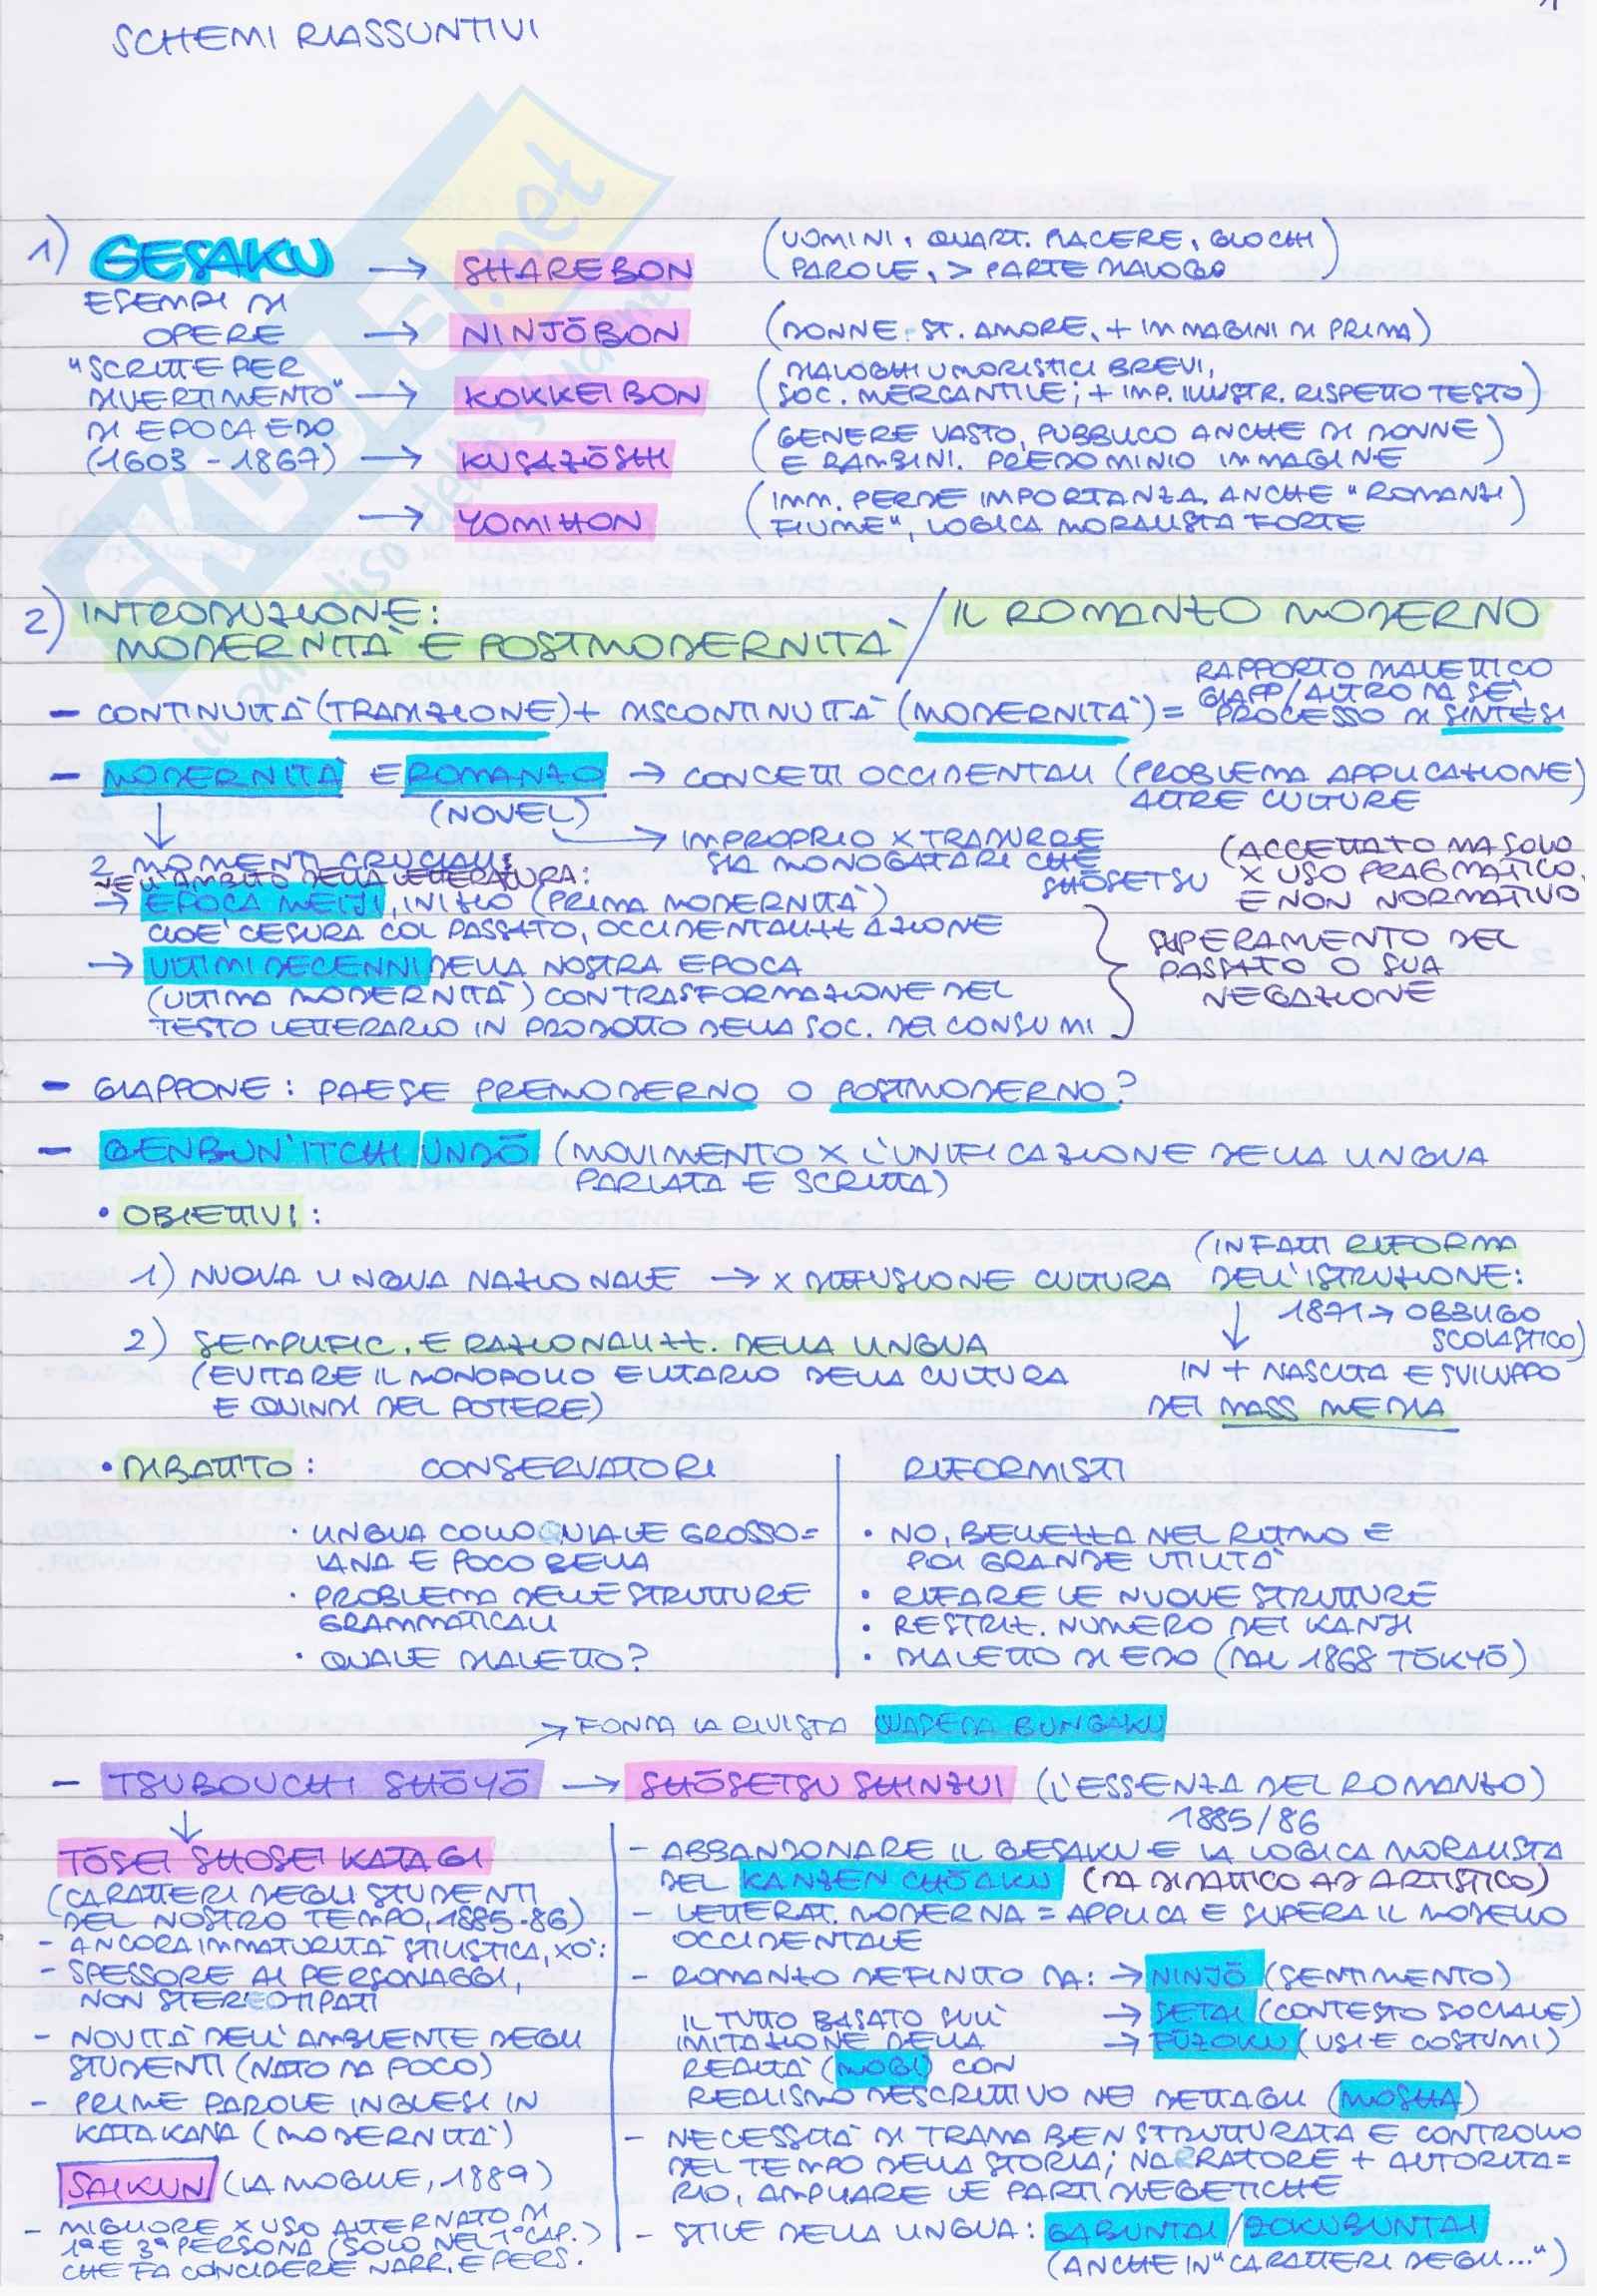 1
SCHEMI RIASSUNTIVI
SKUOLA.net
1) GESAKU → SHAREBON (UOMINI, QUART. PIACERE, GIOCHI
PAROLE, > PARTE DIALOGO)
ESEMPI DI
OPERE → NINJŌBON (DONNE - ST. AMORE, + IMMAGINI DI PRIMA)
"SCRITTE PER
DIVERTIMENTO" → KOKKEIBON (DIALOGHI UMORISTICI BREVI,
SOC. MERCANTILE; + IMP. ILLUSTR. RISPETTO TESTO)
DI EPOCA EDO
(1603 - 1867) → KUSAZŌSHI (GENERE VASTO, PUBBLICO ANCHE DI DONNE
E BAMBINI. PREDOMINIO IMMAGINE)
→ YOMIHON (IMM. PERDE IMPORTANZA. ANCHE "ROMANZI
FIUME", LOGICA MORALISTA FORTE)
2) INTRODUZIONE:
MODERNITÀ E POSTMODERNITÀ / IL ROMANZO MODERNO
- CONTINUITÀ (TRADIZIONE) + DISCONTINUITÀ (MODERNITÀ) =
RAPPORTO DIALETTICO
GIAPP/ALTRO DA SÉ,
PROCESSO DI SINTESI
- MODERNITÀ E ROMANZO → CONCETTI OCCIDENTALI (PROBLEMA APPLICAZIONE)
ALTRE CULTURE
↓ (NOVEL)
→ IMPROPRIO X TRADURRE
SIA MONOGATARI CHE
SHŌSETSU
(ACCETTATO MA SOLO
X USO PRAGMATICO,
E NON NORMATIVO
2 MOMENTI CRUCIALI
NELL'AMBITO DELLA LETTERATURA:
→ EPOCA MEIJI, INIZIO (PRIMA MODERNITÀ)
CIOÈ CESURA COL PASSATO, OCCIDENTALIZZAZIONE
→ ULTIMI DECENNI DELLA NOSTRA EPOCA
(ULTIMA MODERNITÀ) CON TRASFORMAZIONE DEL
TESTO LETTERARIO IN PRODOTTO DELLA SOC. DEI CONSUMI
SUPERAMENTO DEL
PASSATO O SUA
NEGAZIONE
- GIAPPONE: PAESE PREMODERNO O POSTMODERNO?
- GENBUN'ITCHI UNDŌ (MOVIMENTO X L'UNIFICAZIONE DELLA LINGUA
PARLATA E SCRITTA)
• OBIETTIVI:
1) NUOVA LINGUA NAZIONALE → X DIFFUSIONE CULTURA
(INFATTI RIFORMA
DELL'ISTRUZIONE:
↓ 1871 → OBBLIGO
SCOLASTICO)
2) SEMPLIFIC. E RAZIONALIZZ. DELLA LINGUA
(EVITARE IL MONOPOLIO ELITARIO DELLA CULTURA
E QUINDI DEL POTERE)
IN + NASCITA E SVILUPPO
DEI MASS MEDIA
• DIBATTITO: CONSERVATORI
· LINGUA COLLOQUIALE GROSSO=
LANA E POCO BELLA
· PROBLEMA DELLE STRUTTURE
GRAMMATICALI
· QUALE DIALETTO?
RIFORMISTI
• NO, BELLEZZA NEL RITMO E
POI GRANDE UTILITÀ
• RIFARE LE NUOVE STRUTTURE
• RESTRIZ. NUMERO DEI KANJI
• DIALETTO DI EDO (DAL 1868 TŌKYŌ)
→ FONDA LA RIVISTA WASEDA BUNGAKU
- TSUBOUCHI SHŌYŌ → SHŌSETSU SHINZUI (L'ESSENZA DEL ROMANZO)
1885/86
↓
TŌSEI SHOSEI KATAGI
(CARATTERI DEGLI STUDENTI
DEL NOSTRO TEMPO, 1885-86)
- ANCORA IMMATURITÀ STILISTICA, XÒ:
- SPESSORE AI PERSONAGGI,
NON STEREOTIPATI
- NOVITÀ DELL'AMBIENTE DEGLI
STUDENTI (NATO DA POCO)
- PRIME PAROLE INGLESI IN
KATAKANA (MODERNITÀ)
SAIKUN (LA MOGLIE, 1889)
- MIGLIORE X USO ALTERNATO DI
1ª E 3ª PERSONA (SOLO NEL 1° CAP.)
CHE FA COINCIDERE NARR. E PERS.
- ABBANDONARE IL GESAKU E LA LOGICA MORALISTA
DEL KANZEN CHŌAKU (DA DIDATTICO AD ARTISTICO)
- LETTERAT. MODERNA = APPLICA E SUPERA IL MODELLO
OCCIDENTALE
- ROMANZO DEFINITO DA: → NINJŌ (SENTIMENTO)
→ SETAI (CONTESTO SOCIALE)
→ FŪZOKU (USI E COSTUMI)
IL TUTTO BASATO SULL'
IMITAZIONE DELLA
REALTÀ (MOGI) CON
REALISMO DESCRITTIVO NEI DETTAGLI (MOSHA)
- NECESSITÀ DI TRAMA BEN STRUTTURATA E CONTROLLO
DEL TEMPO DELLA STORIA; NARRATORE + AUTORITA=
RIO, AMPLIARE LE PARTI DIEGETICHE
- STILE DELLA LINGUA: GABUNTAI / ZOKUBUNTAI
(ANCHE IN "CARATTERI DEGLI...")